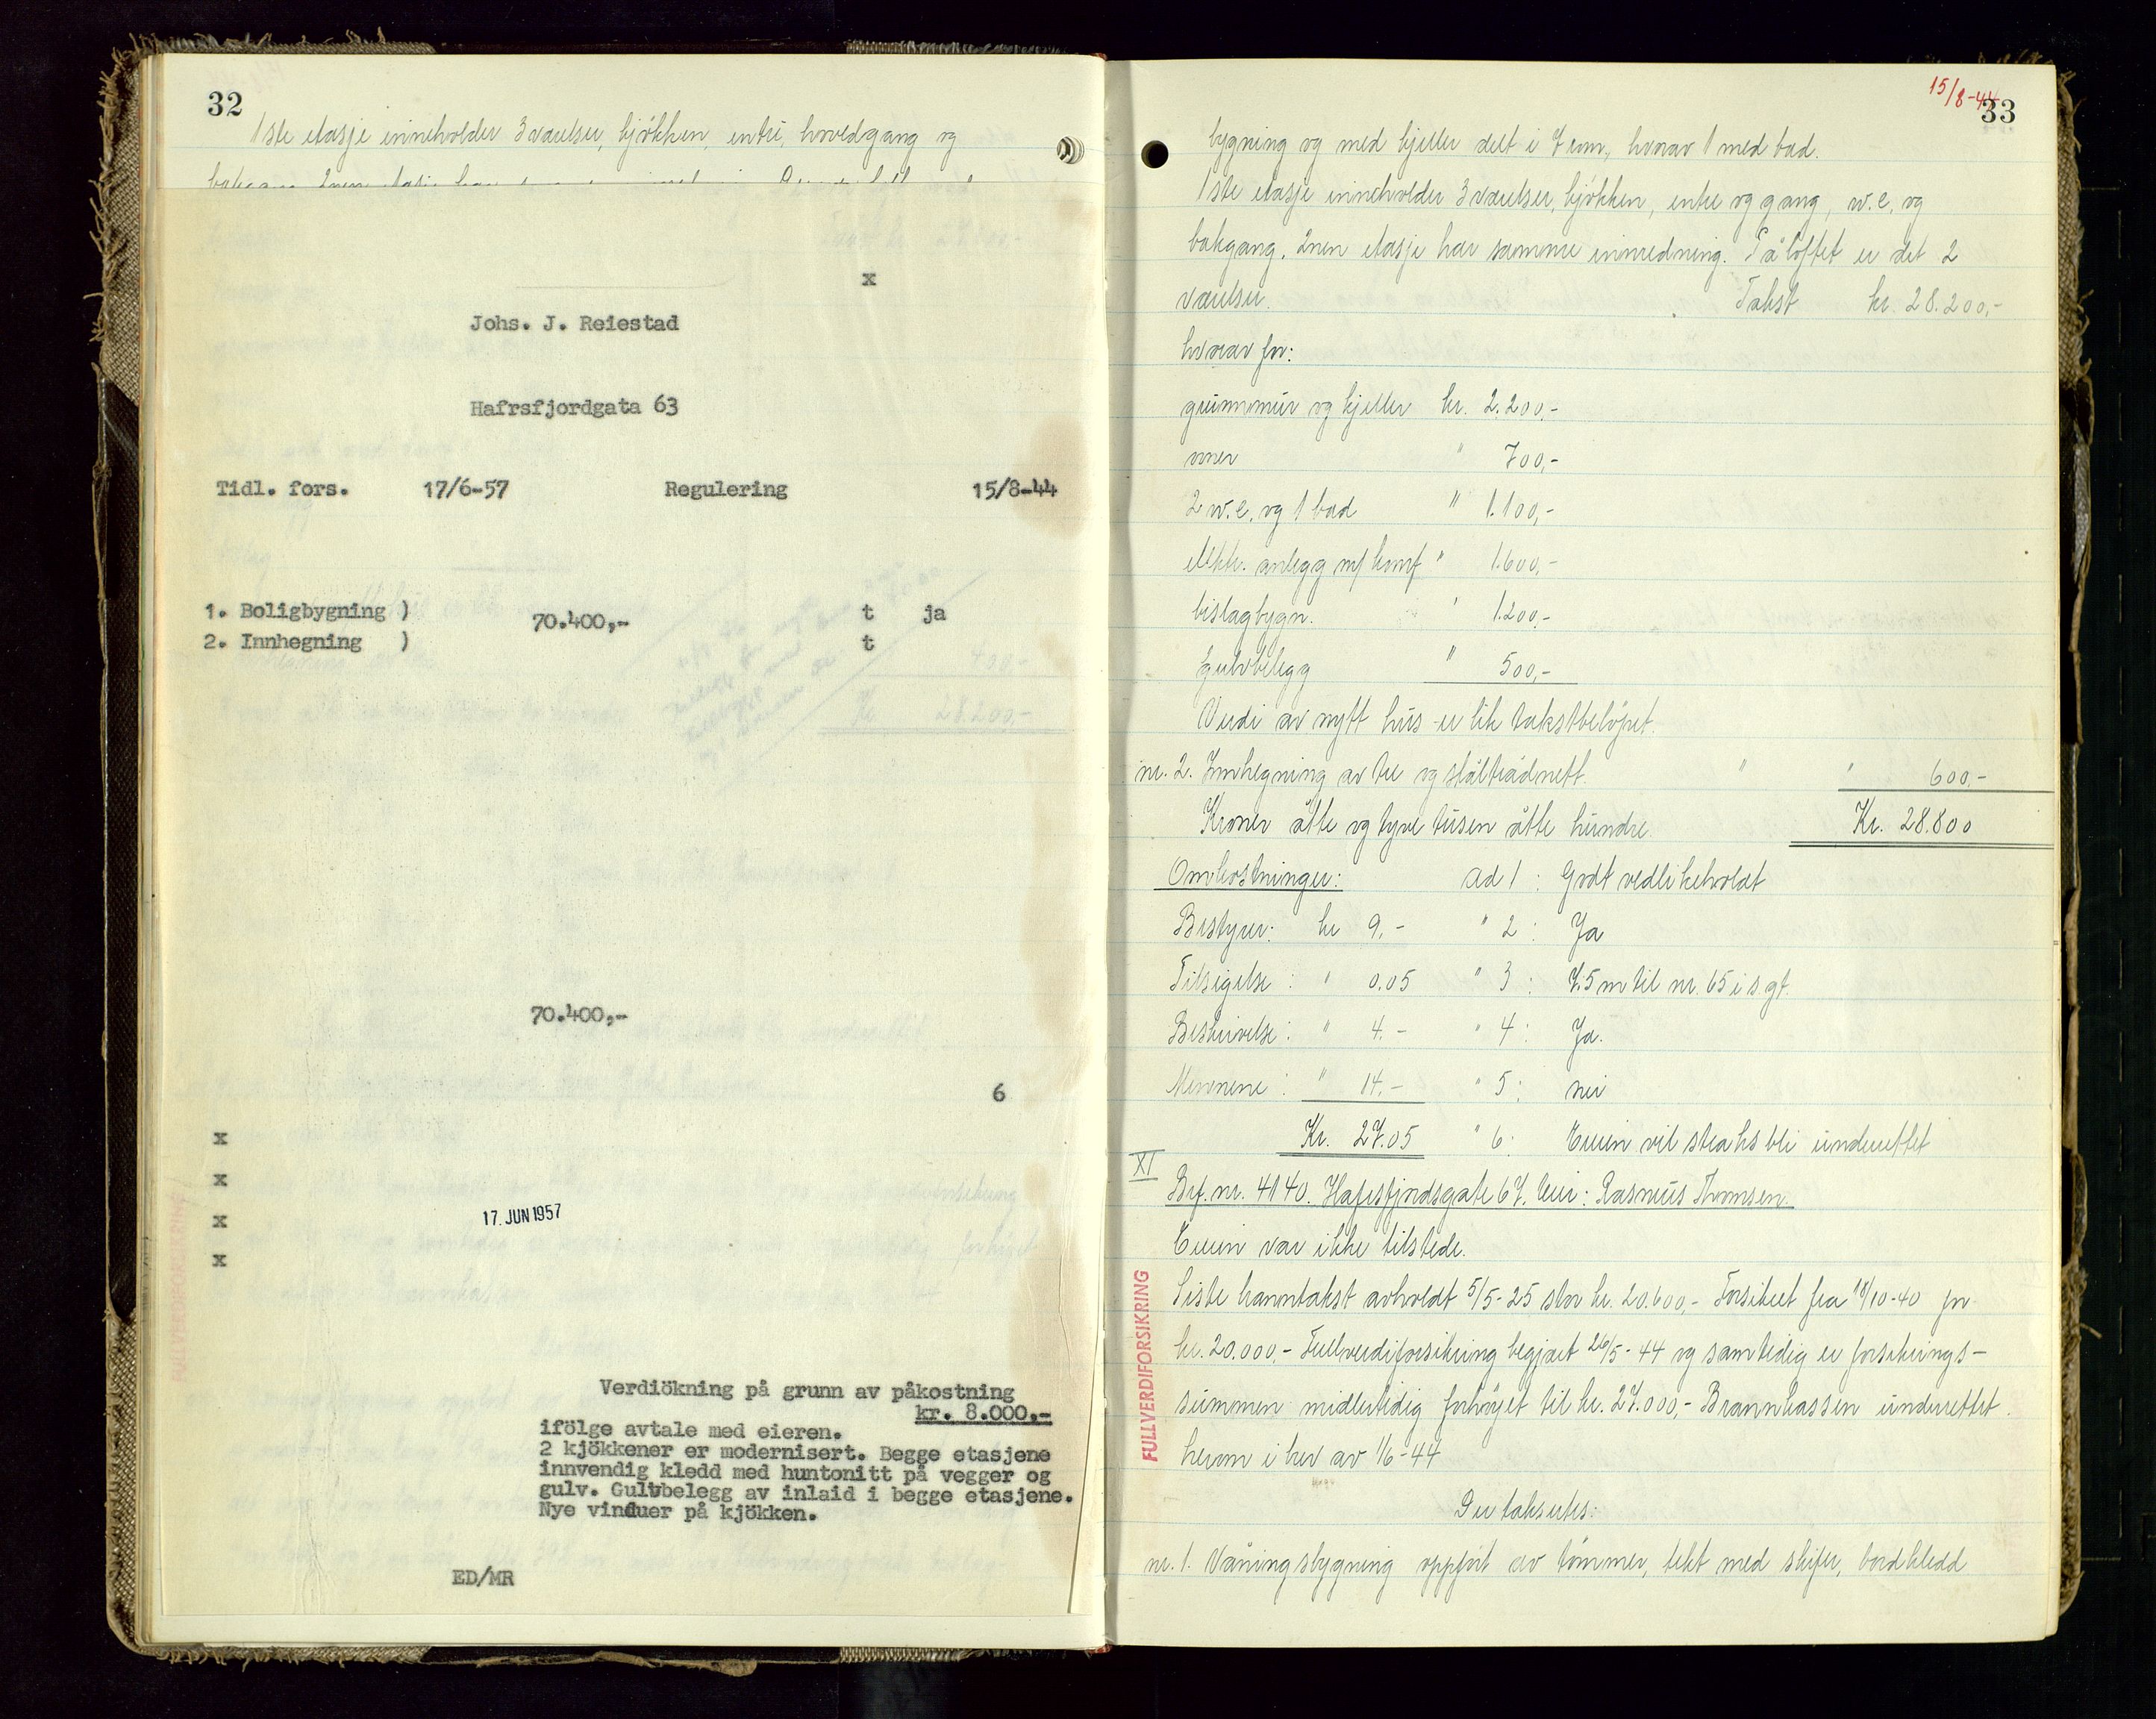 32
1ste etasje inneholder 3 værelser, kjökken, entré, hovedgang og
bakgang. 2nen etasje har
x
Johs. J. Reiestad
Hafrsfjordgata 63
Tidl. fors. 17/6-57 Regulering 15/8-44
1. Boligbygning ) 70.400,- t ja
2. Innhegning ) t
400,-
Kr 28.200,-
70.400,-
6
x
x
x
x
17. JUN 1957
FULLVERDIFORSIKRING
Verdiökning på grunn av påkostning
kr. 8.000,-
ifölge avtale med eieren.
2 kjökkener er modernisert. Begge etasjene
innvendig kledd med huntonitt på vegger og
gulv. Gulvbelegg av inlaid i begge etasjene.
Nye vinduer på kjökken.
ED/MR
15/8-44
33
bygning og med kjeller delt i 7 rom, hvorav 1 med bad.
1ste etasje inneholder 3 værelser, kjökken, entre og gang, w.c. og
bakgang. 2nen etasje har samme innredning. På loftet er det 2
værelser. Takst kr. 28.200,-
hvorav for:
grunnmur og kjeller kr. 2.200,-
ovner " 700,-
2 w.c. og 1 bad " 1.100,-
elektr. anlegg m/ komf " 1.600,-
bislagbygn. " 1.200,-
gulvbelegg " 500,-
Verdi av nytt hus er lik takstbelöpet.
nr. 2. Innhegning av tre og ståltrådnett. " " 600,-
Kroner åtte og tyve tusen åtte hundre. Kr. 28.800
Omkostninger: ad 1 : Godt vedlikeholdt
Bestyrer: kr 9.- " 2 : Ja
Tilsigelse : " 0.05 " 3 : 7.5 m til nr. 65 i s.gt.
Beskrivelse : " 4.- " 4 : Ja.
Mennene : " 14.- " 5 : nei
Kr. 27.05 " 6 : Eieren vil straks bli underrettet
XI
Brf. nr. 4140. Hafrsfjordsgate 67. Eier: Rasmus Thomsen.
Eieren var ikke tilstede.
Siste branntakst avholdt 5/5-25 stor kr. 20.600,- Forsikret fra 18/10-40 for
kr. 20.000,- Fullverdiforsikring begjært 26/5-44 og samtidig er forsikrings-
summen midlertidig forhöyet til kr. 27.000,- Brannkassen underrettet
herom i brev av 1/6-44
FULLVERDIFORSIKRING
Der taksertes:
nr. 1. Våningsbygning oppfört av tömmer, tekt med skifer, bordkledd